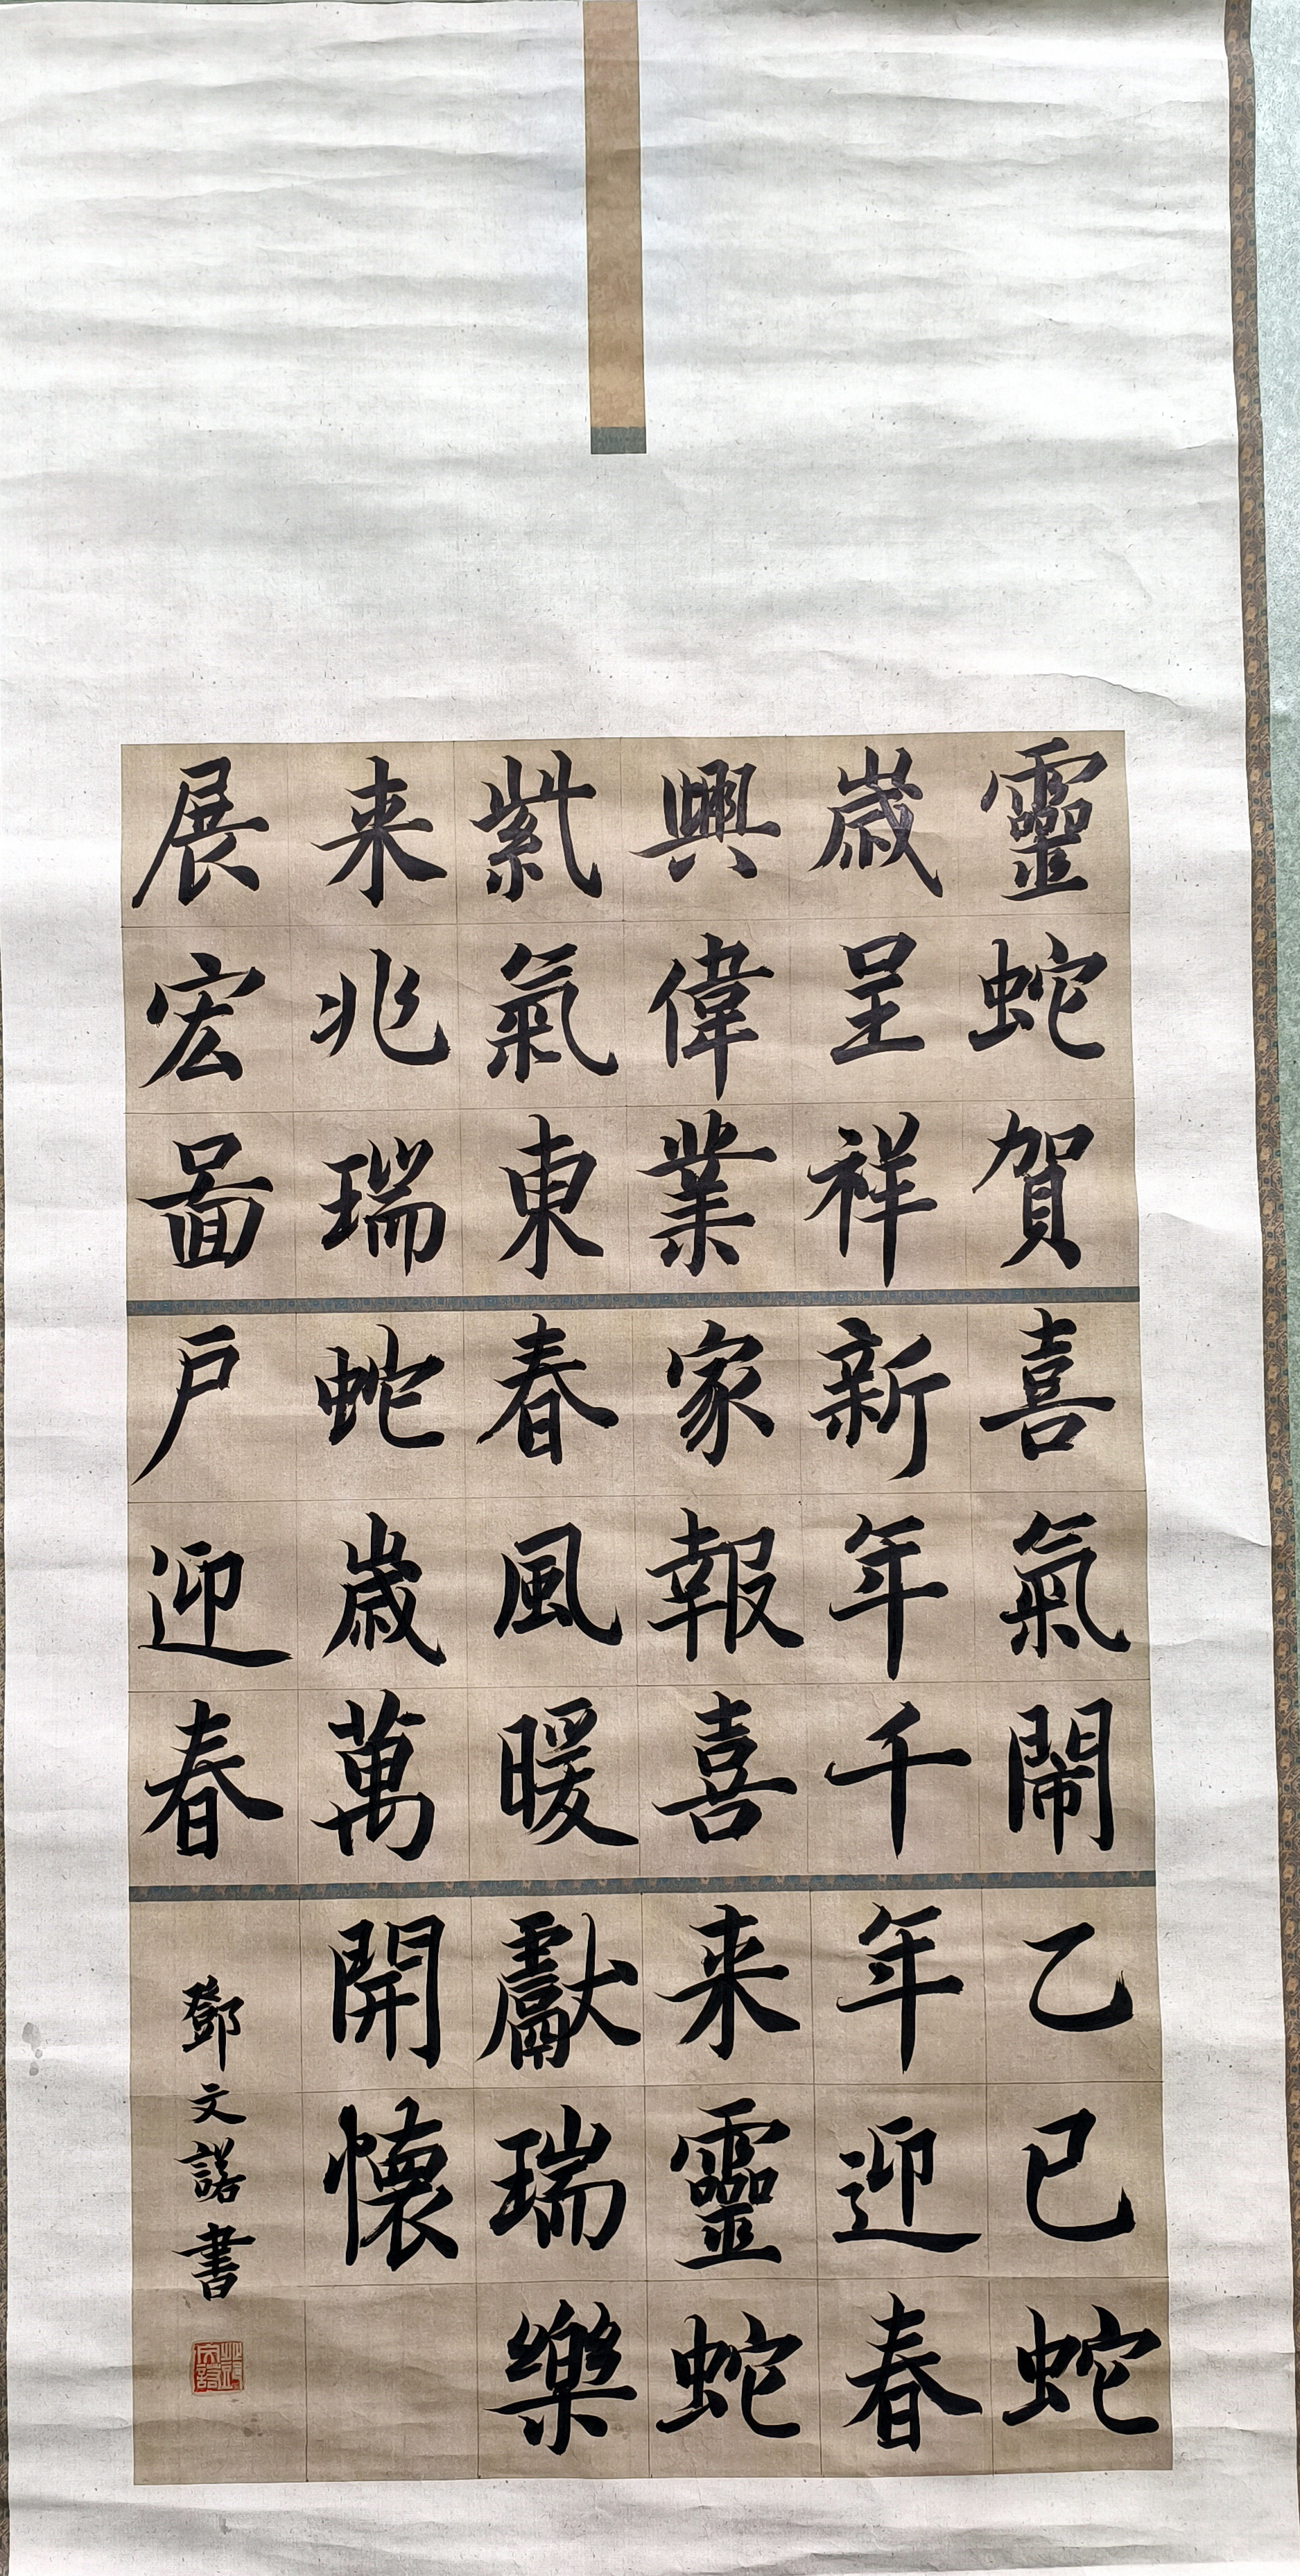 靈蛇賀
歲呈祥
興偉業
紫氣東
来兆瑞
展宏啚
喜氣鬧
新年千
家報喜
春風暖
蛇歲萬
戶迎春
乙巳蛇
年迎春
来靈蛇
獻瑞樂
開懷
鄧文諾書